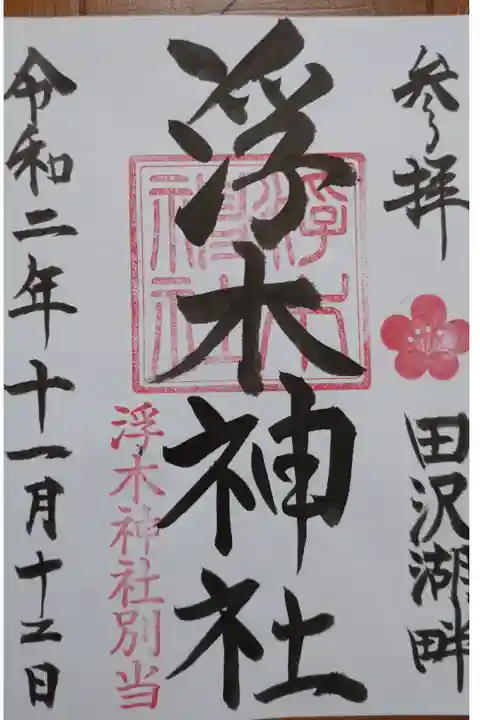 参拝
田沢湖畔
浮木神社
浮木
神社
浮木神社別当
令和二年十一月十五日